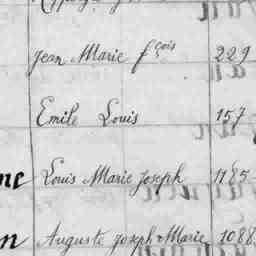 Jean Marie fçois 229
Emile Louis 157
ne Louis Marie Joseph 1185
n Auguste Joseph Marie 1088